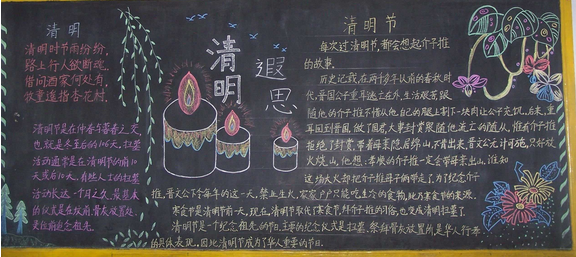 清明
清明时节雨纷纷,
路上行人欲断魂。
借问酒家何处有,
牧童遥指杏花村。
清明节是在仲春与暮春之交,
也就是冬至后的106天。扫墓
活动通常是在清明节的前10
天或后10天。有些人士的扫墓
活动长达一个月之久。是基本
的仪式是在坟前骨灰放置处
灵位前追念祖先。
清明
遐思
清明节
每次过清明节,都会想起介子推
的故事。
历史记载,在两千多年以前的春秋时
代,晋国公子重耳逃亡在外,生活艰苦,跟
随他的介子推不惜从他自己的腿上割下一块肉让公子充饥。后来,重
耳回到晋国,做了国君,大事封赏跟随他流亡的随从,惟有介子推
拒绝了封赏,带着母亲隐居绵山,不肯出来,晋文公无计可施,只好放
火烧山,他想:孝顺的介子推一定会带母亲出山。谁知
这场大火却把介子推母子俩带走了,为了纪念介子
推,晋文公下令每年的这一天,禁止生火,家家户户只能吃生冷的食物,此乃寒食节的来源。
寒食节是清明节前一天,现在,清明节取代了寒食节,拜介子推的习俗,也变成清明扫墓了。
清明节是一个纪念祖先的节日,主要的纪念仪式是扫墓,祭拜骨灰放置的是华人行孝
的具体表现,因此清明节成为了华人重要的节日。